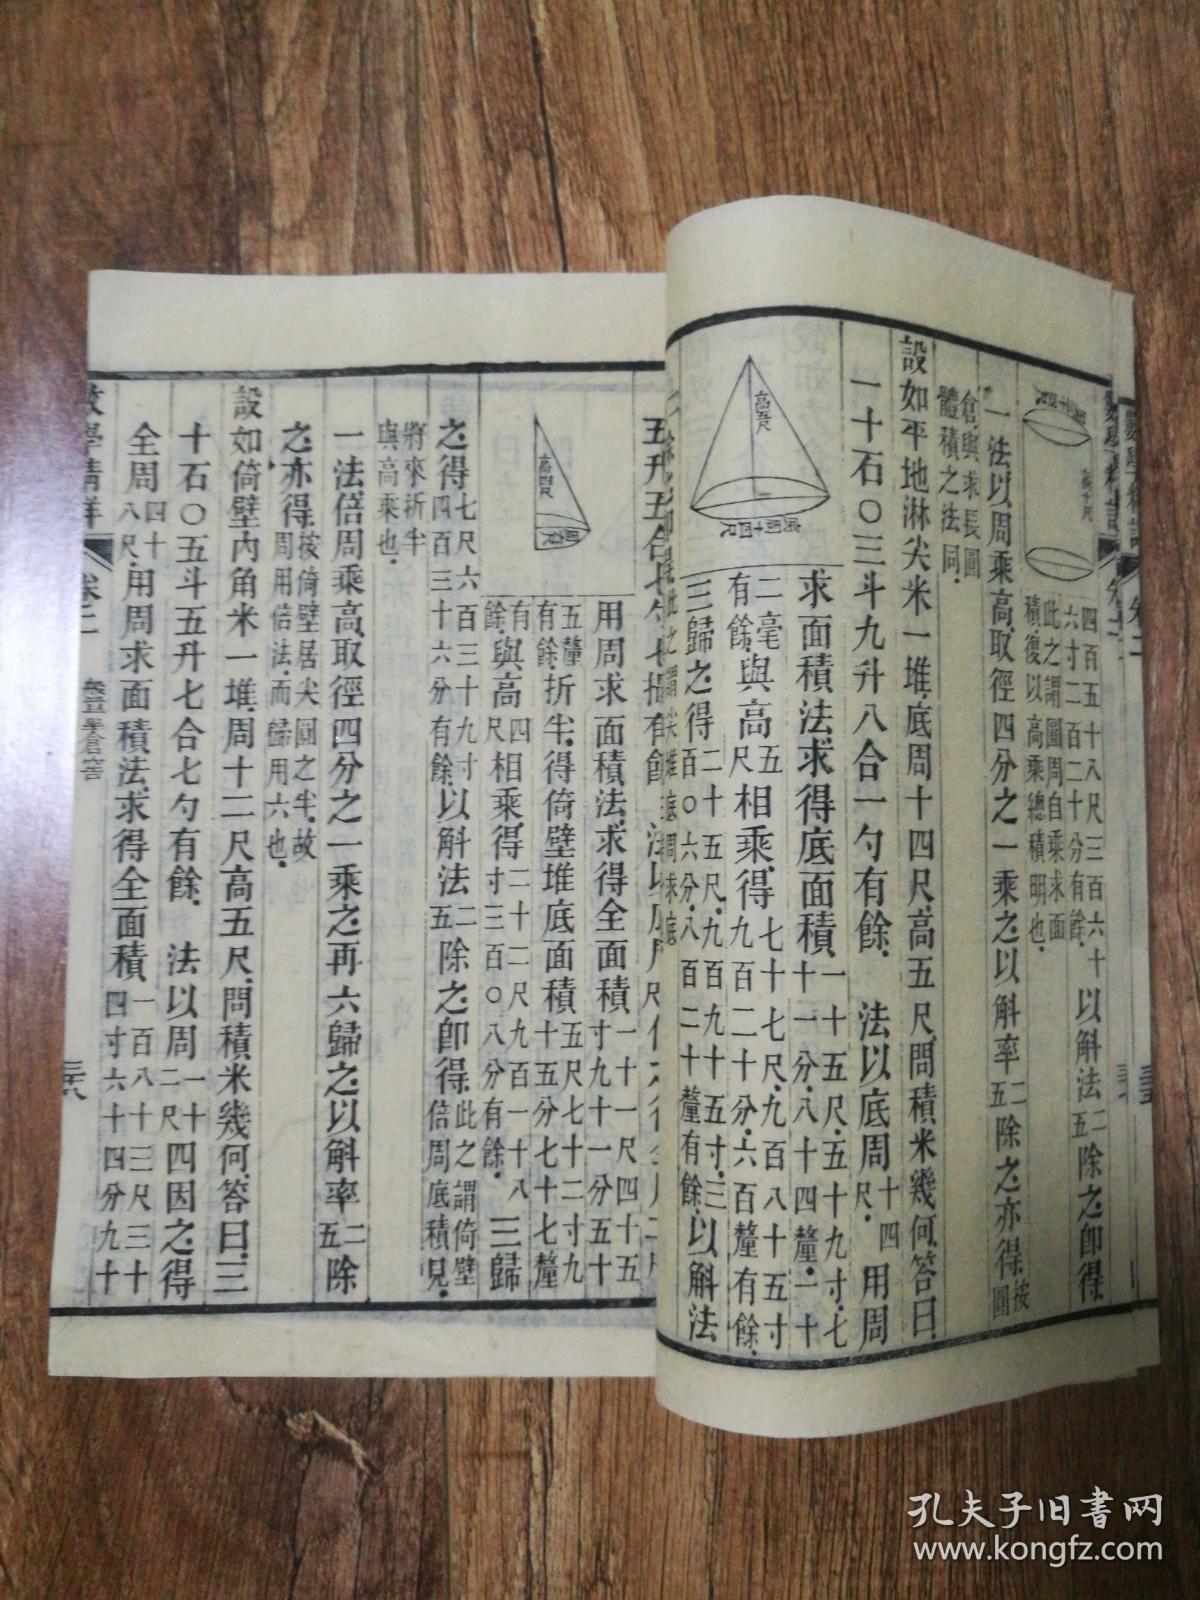 四百五十八尺三百六十
六寸二百二十分有餘
以斛法二五除之卽得
此之謂圓周自乘求面
積復以高乘總積明也
一法以周乘高取徑四分之一乘之以斛率二五除之亦得按圓
倉與求長圓
體積之法同
設如平地淋尖米一堆底周十四尺高五尺問積米幾何答曰
一十石〇三斗九升八合一勺有餘 法以底周十四尺用周
高五尺
底周十四尺
求面積法求得底面積一十五尺五十九寸七
十一分八十四釐二十
二毫有餘與高五尺相乘得七十七尺九百八十五寸
九百二十分六百釐有餘
三歸之得二十五尺九百九十五寸三
百〇六分八百二十釐有餘以斛法
用周求面積法求得全面積一十一尺四十五
寸九十一分五十
五釐有餘折半得倚壁堆底面積五尺七十二寸九
十五分七十七釐
有餘與高四尺相乘得二十二尺九百一十八
寸三百〇八分有餘三歸
高四尺
之得七尺六百三十九寸
四百三十六分有餘以斛法二五除之卽得此之謂倚壁
倍周底積見
將來折半
與高乘也
一法倍周乘高取徑四分之一乘之再六歸之以斛率二五除
之亦得按倚壁居尖圓之半故
周用倍法而歸用六也
設如倚壁內角米一堆周十二尺高五尺問積米幾何答曰三
十石〇五斗五升七合七勺有餘 法以周一十二尺四因之得
全周四十八尺用周求面積法求得全面積一百八十三尺三十
四寸六十四分九十
數學精詳
卷二
三十八
孔夫子旧书网
www.kongfz.com